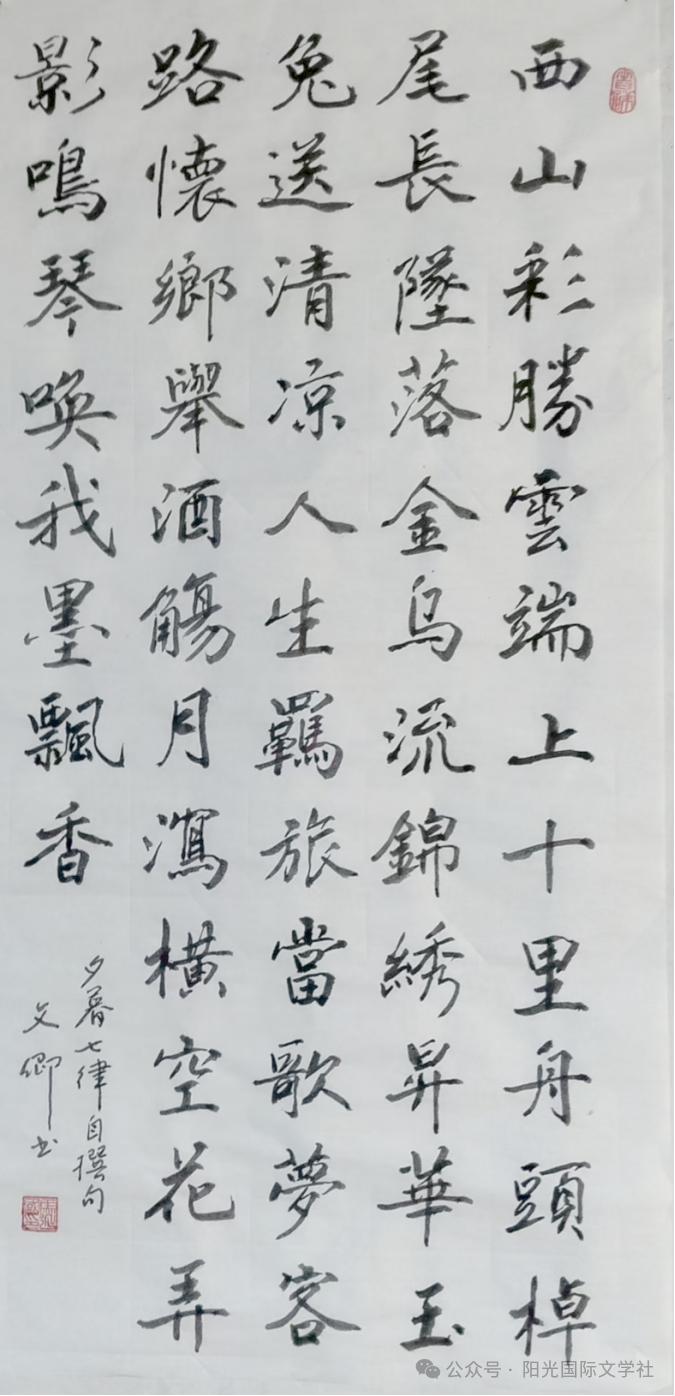 西山彩勝雲端上十里舟頭棹
尾長墜落金烏流錦綉昇華玉
兔送清凉人生羈旅當歌夢客
路懷鄉舉酒觴月瀉橫空花弄
影鳴琴喚我墨飄香
夕暮七律自撰句
文卿书
公众号·阳光国际文学社